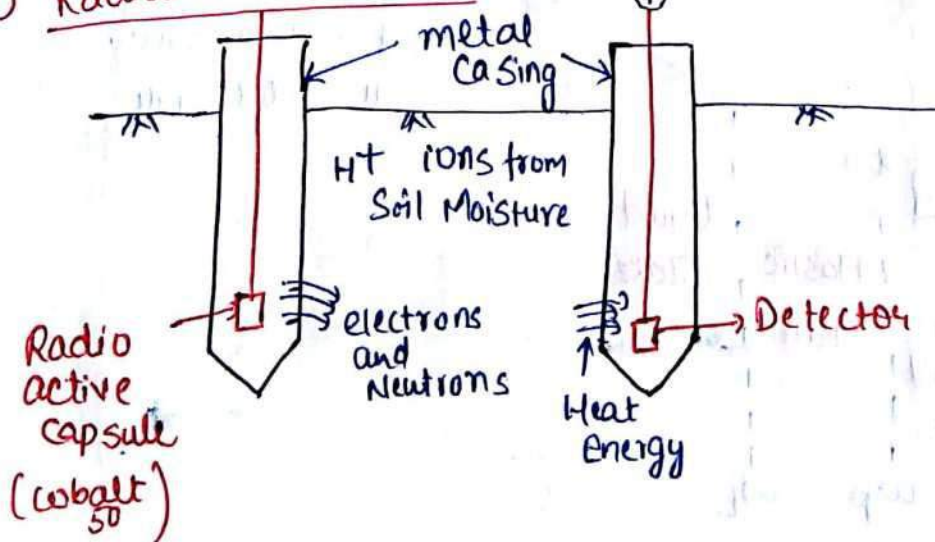 metal
Casing
H+ ions from
Soil Moisture
electrons
and
Neutrons
Radio
active
capsule
(cobalt
50)
Detector
Heat
Energy